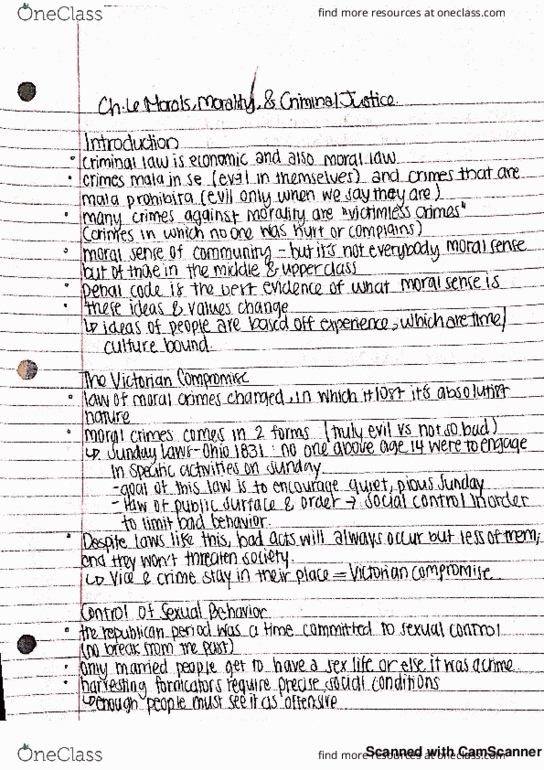 OneClass
find more resources at oneclass.com
Ch. 6 Morals, Morality, & Criminal Justice.
Introduction
• criminal law is economic and also moral law
• crimes mala in se (evil in themselves) and crimes that are
mala prohibita (evil only when we say they are)
• many crimes against morality are "victimless crimes"
(crimes in which no one was hurt or complains)
• moral sense of community - but it's not everybody moral sense
but of those in the middle & upper class
• penal code is the best evidence of what moral sense is
• these ideas & values change
↳ ideas of people are based off experience, which are time/
culture bound.
The Victorian Compromise
• law of moral crimes changed, in which it lost it's absolutist
nature
• moral crimes comes in 2 forms (truly evil vs not so bad)
↳ Sunday Laws - Ohio 1831: no one above age 14 were to engage
in specific activities on Sunday.
- goal of this law is to encourage quiet, pious Sunday
- law of public surface & order → social control in order
to limit bad behavior.
• Despite laws like this, bad acts will always occur but less of them,
and they won't threaten society.
↳ vice & crime stay in their place = Victorian compromise
Control of Sexual Behavior
• the republican period was a time committed to sexual control
(no break from the past)
• only married people get to have a sex life or else it was a crime.
• harvesting fornicators require precise social conditions
↳ enough people must see it as offensive
OneClass
find more resources at oneclass.com
Scanned with CamScanner